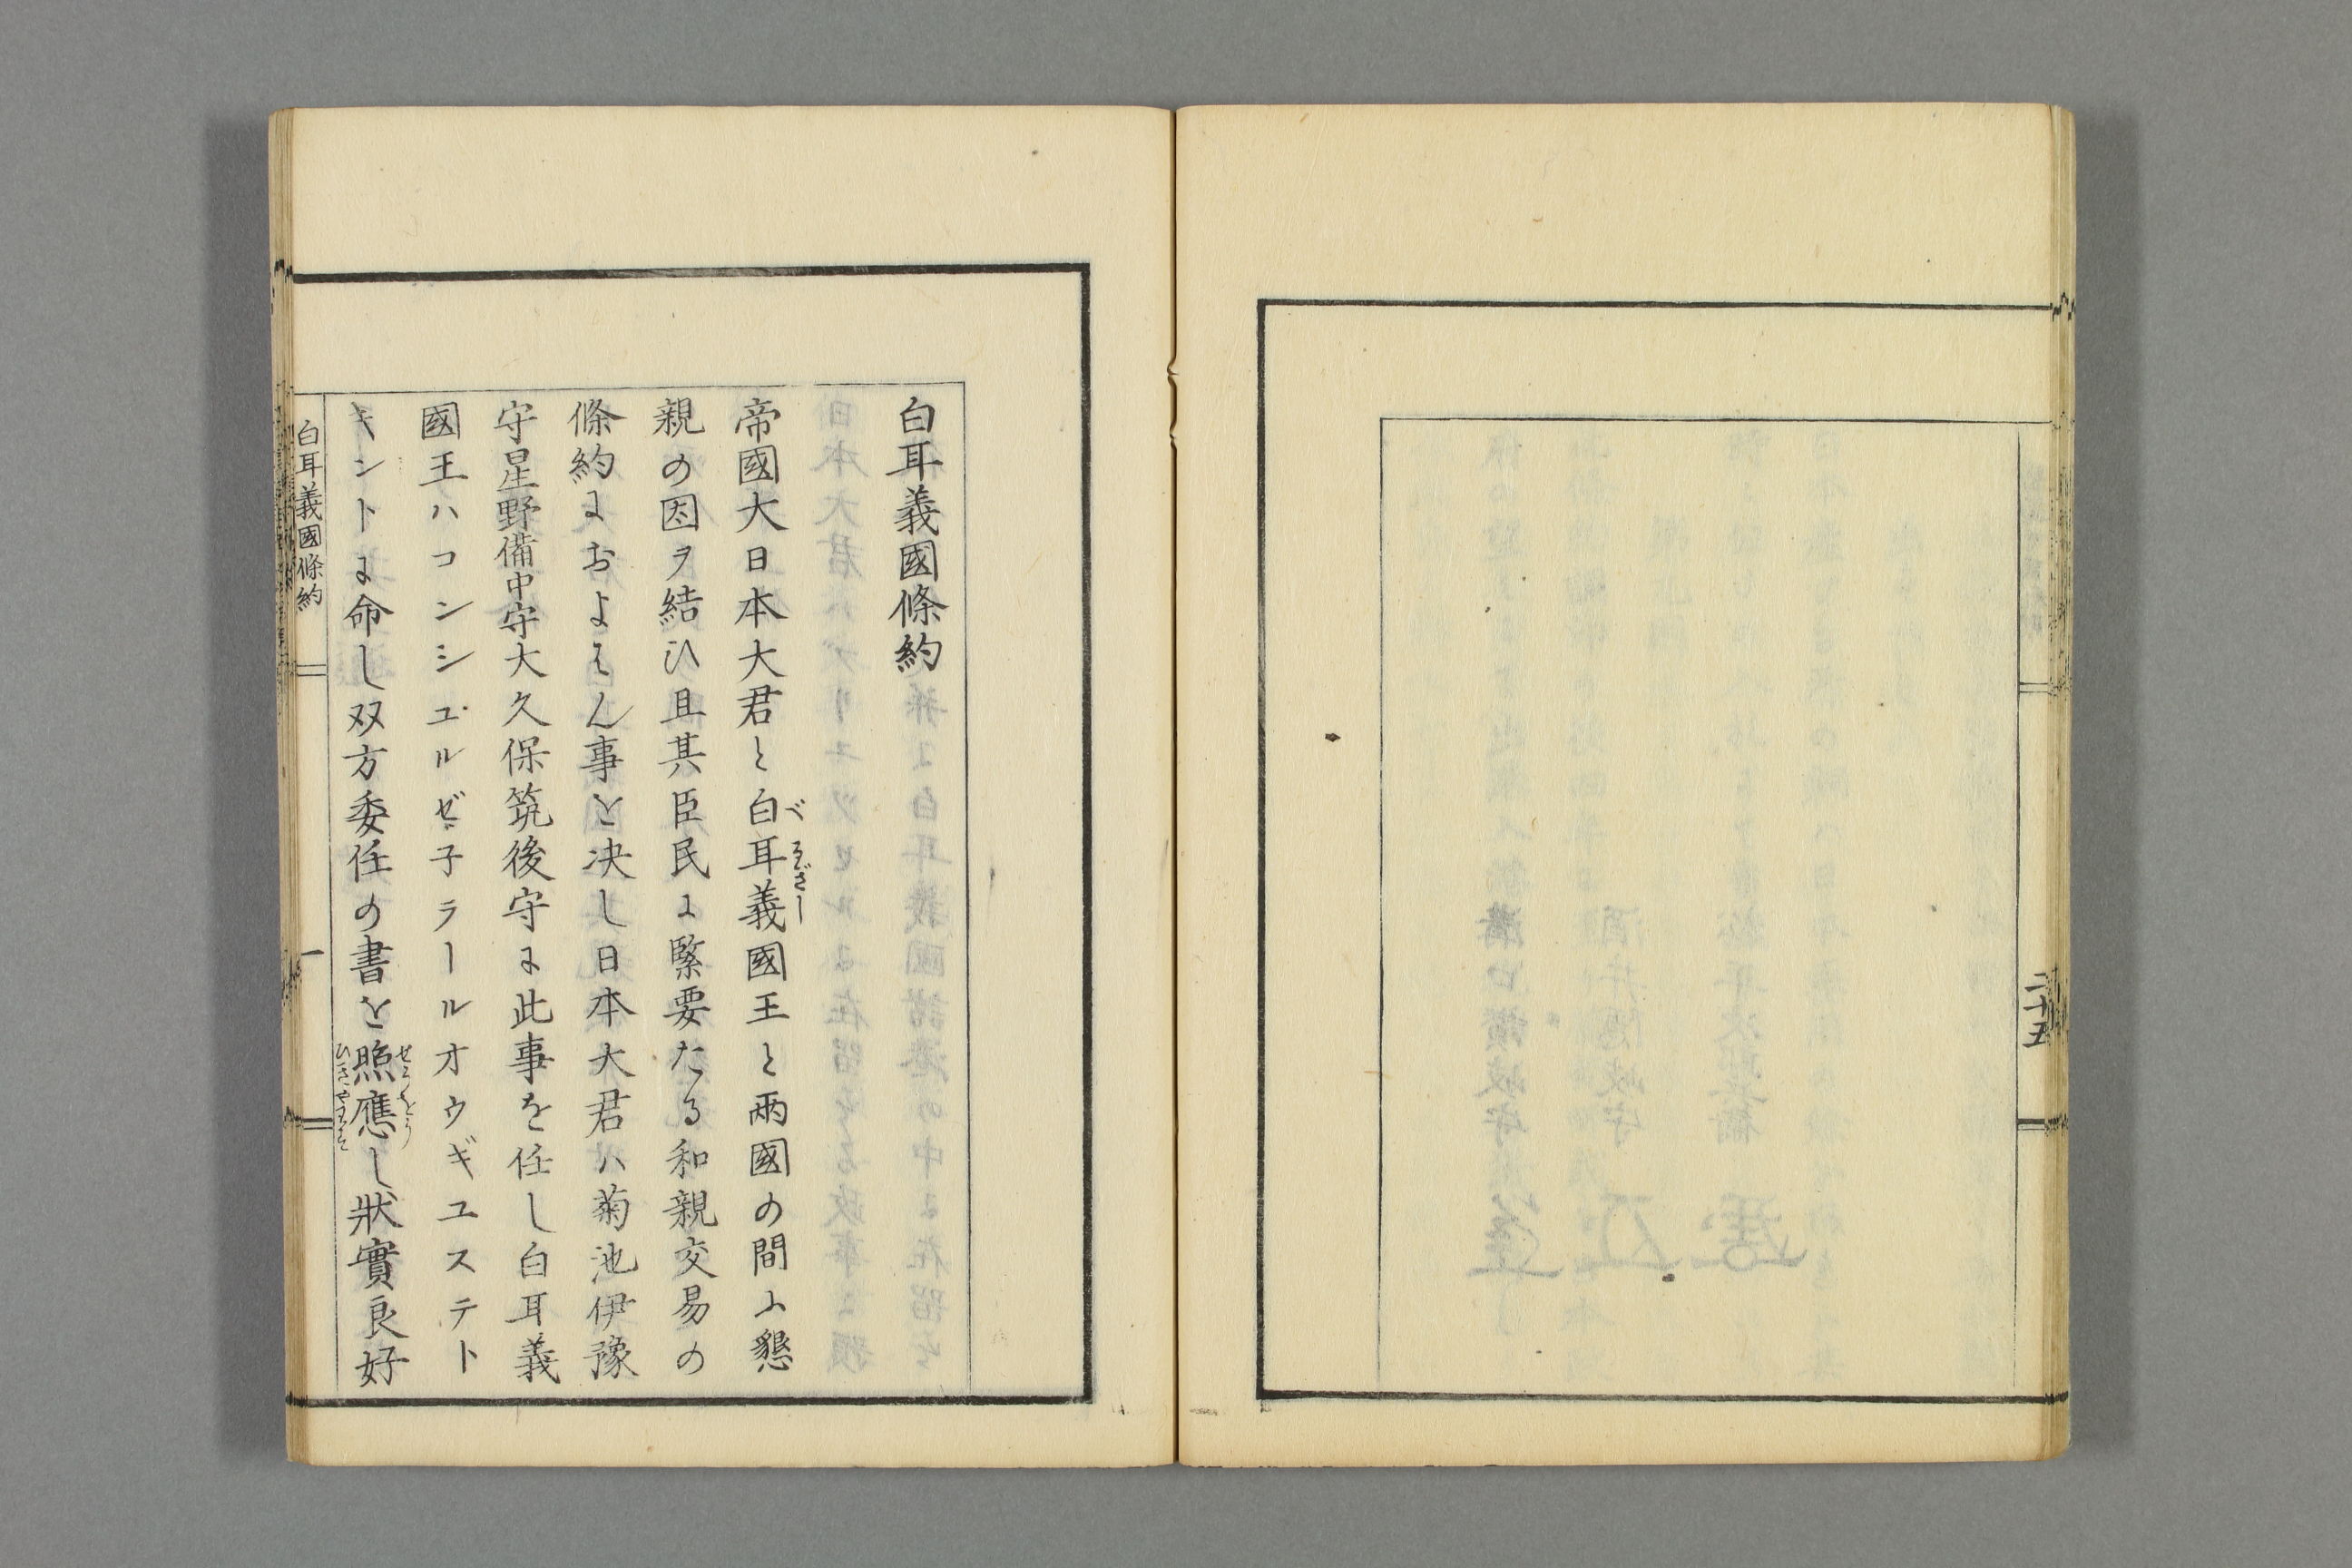 二十五
白耳義國條約
帝國大日本大君と白耳義國王と兩國の間ふ懇
べるぎー
親の因ヲ結ひ且其臣民に緊要たる和親交易の
條約におよはん事を決し日本大君ハ菊池伊豫
守星野備中守大久保筑後守に此事を任し白耳義
國王ハコンシユルゼ子ラールオウギユステト
キントに命し双方委任の書を照應し狀實良好
白耳義國條約
一